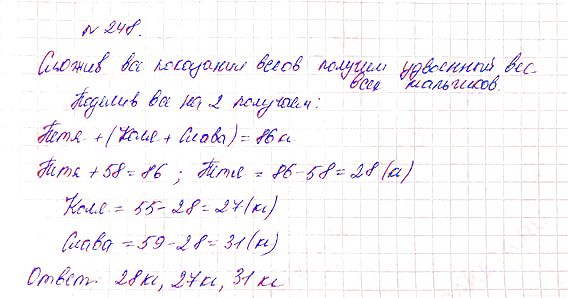 № 248.
Сложив все показания весов получим удвоенный вес
всех мальчиков.
Поделив все на 2 получаем:
Петя + (Коля + Слава) = 86 кг
Петя + 58 = 86 ; Петя = 86 - 58 = 28 (кг)
Коля = 55 - 28 = 27 (кг)
Слава = 59 - 28 = 31 (кг)
Ответ: 28 кг, 27 кг, 31 кг